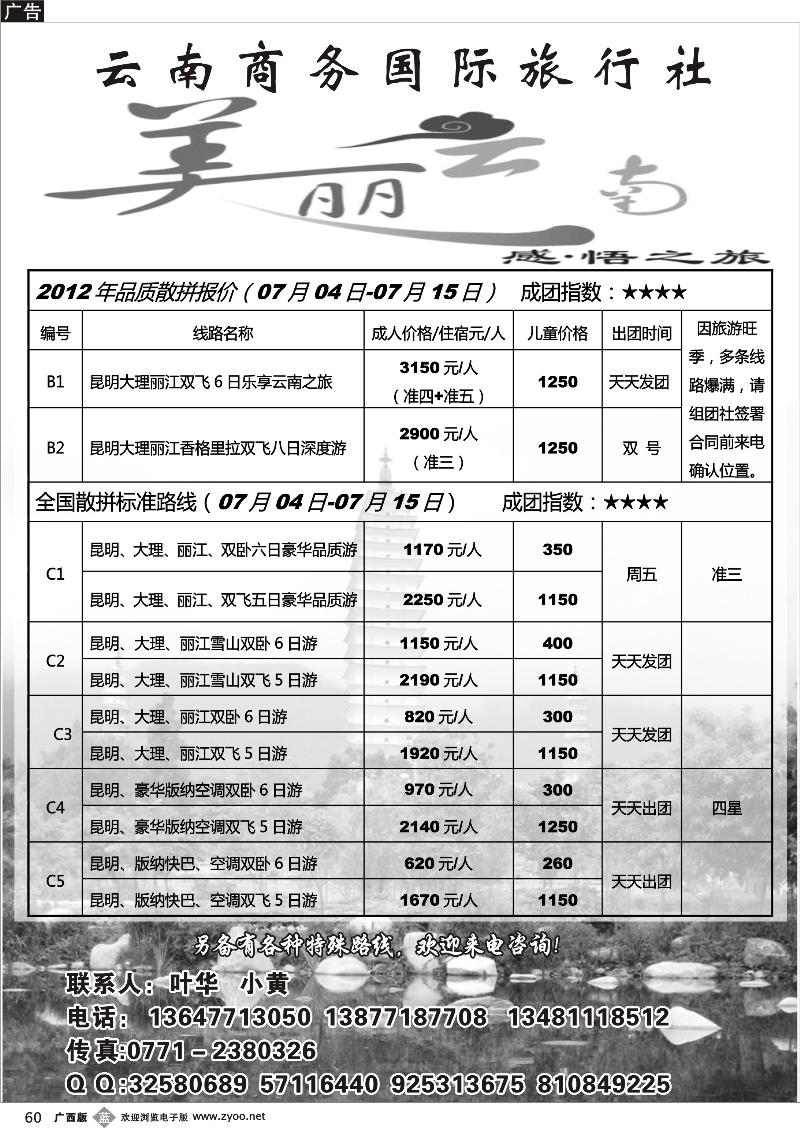 广告
云南商务国际旅行社
美丽云南
感·悟之旅
2012年品质散拼报价（07月04日-07月15日） 成团指数：★★★★
编号 线路名称 成人价格/住宿元/人 儿童价格 出团时间 因旅游旺季，多条线路爆满，请组团社签署合同前来电确认位置。
B1 昆明大理丽江双飞6日乐享云南之旅 3150元/人（准四+准五） 1250 天天发团
B2 昆明大理丽江香格里拉双飞八日深度游 2900元/人（准三） 1250 双 号
全国散拼标准路线（07月04日-07月15日） 成团指数：★★★★
C1 昆明、大理、丽江、双卧六日豪华品质游 1170元/人 350 周五 准三
昆明、大理、丽江、双飞五日豪华品质游 2250元/人 1150
C2 昆明、大理、丽江雪山双卧6日游 1150元/人 400 天天发团
昆明、大理、丽江雪山双飞5日游 2190元/人 1150
C3 昆明、大理、丽江双卧6日游 820元/人 300 天天发团
昆明、大理、丽江双飞5日游 1920元/人 1150
C4 昆明、豪华版纳空调双卧6日游 970元/人 300 天天出团 四星
昆明、豪华版纳空调双飞5日游 2140元/人 1250
C5 昆明、版纳快巴、空调双卧6日游 620元/人 260 天天出团
昆明、版纳快巴、空调双飞5日游 1670元/人 1150
另备有各种特殊路线，欢迎来电咨询！
联系人：叶华 小黄
电话： 13647713050 13877187708 13481118512
传真:0771－2380326
Q Q:32580689 57116440 925313675 810849225
60 广西版 蓝 欢迎浏览电子版 www.zyoo.net